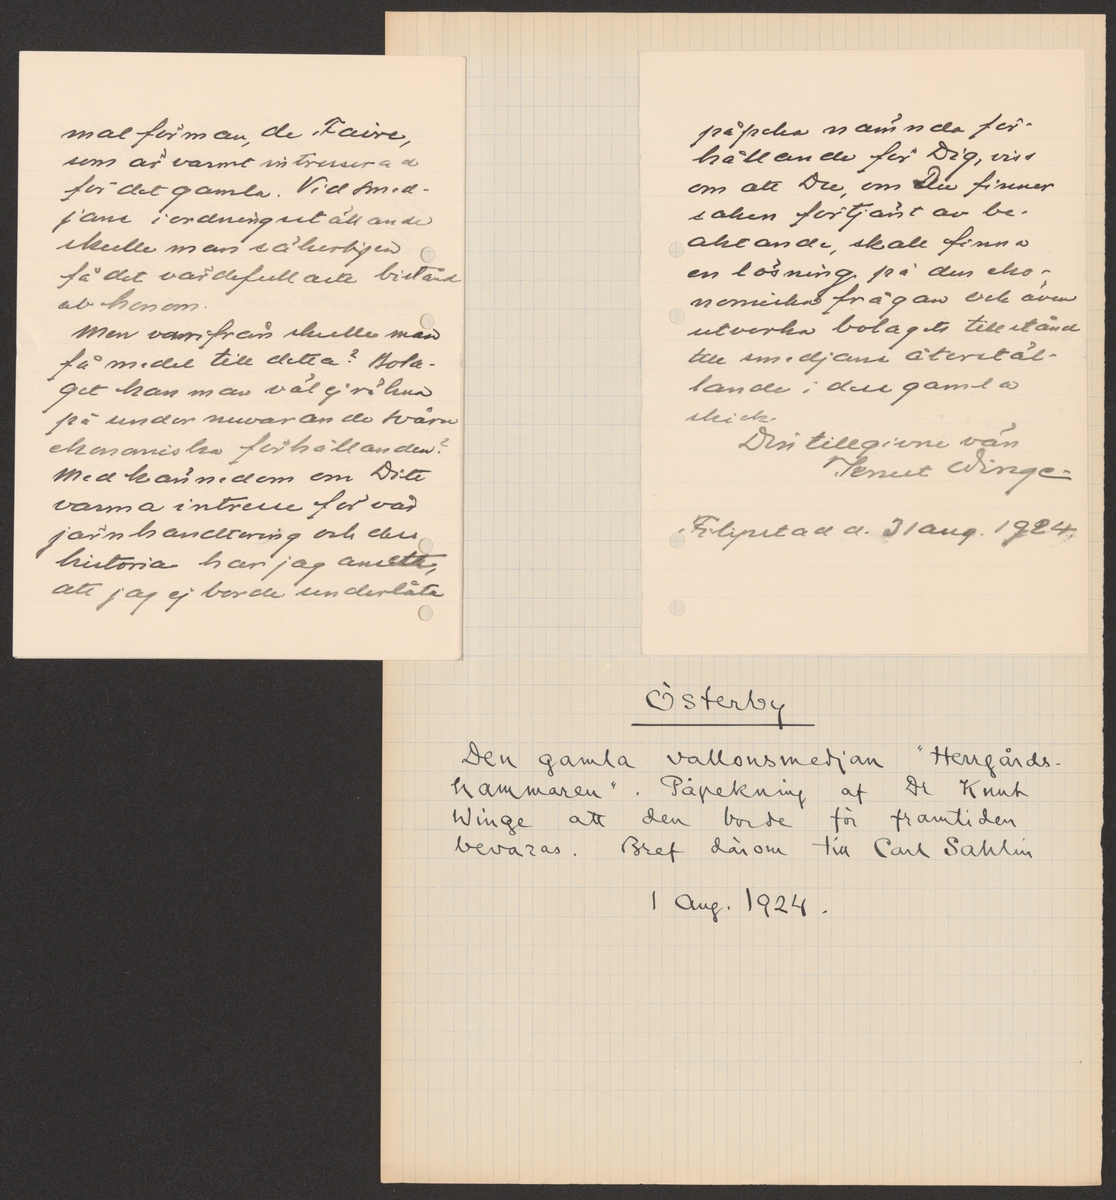 mal förman, de Faire,
som är varmt intresserad
för det gamla. Vid smed-
jans iordningställande
skulle man säkerligen
få det värdefullaste bistånd
av honom.
Men varifrån skulle man
få medel till detta? Bola-
get kan man väl ej räkna
på under nuvarande svåra
ekonomiska förhållanden?
Med kännedom om Ditt
varma intresse för vår
järnhandtering och dess
historia har jag ansett,
att jag ej borde underlåta
påpeka nämnda för-
hållande för Dig, viss
om att Du, om Du finner
saken förtjänt av be-
aktande, skall finna
en lösning på den eko-
nomiska frågan och även
utverka bolagets tillstånd
till smedjans återstäl-
lande i dess gamla
skick.
Din tillgivne vän
Knut Winge
Filipstad d. 31 aug. 1924.
Österby
Den gamla vallonsmedjan "Herrgårds-
hammaren". Påpekning af Dr Knut
Winge att den borde för framtiden
bevaras. Bref därom till Carl Sahlin
1 Aug. 1924.